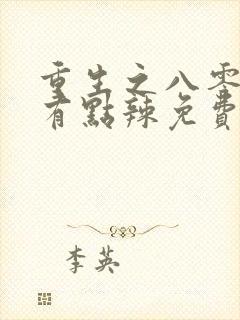 重生之八零
有點辣免費
李英